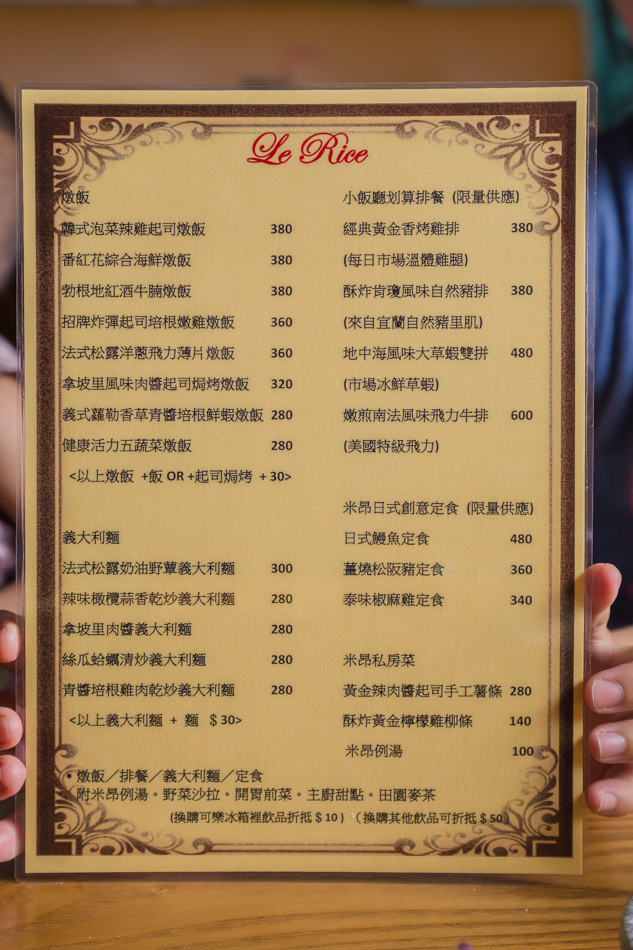 Le Rice
燉飯
韓式泡菜辣雞起司燉飯 380
番紅花綜合海鮮燉飯 380
勃根地紅酒牛腩燉飯 380
招牌炸彈起司培根嫩雞燉飯 360
法式松露洋蔥飛力薄片燉飯 360
拿坡里風味肉醬起司焗烤燉飯 320
義式蘿勒香草青醬培根鮮蝦燉飯 280
健康活力五蔬菜燉飯 280
<以上燉飯 +飯 OR +起司焗烤 + 30>
義大利麵
法式松露奶油野蕈義大利麵 300
辣味橄欖蒜香乾炒義大利麵 280
拿坡里肉醬義大利麵 280
絲瓜蛤蠣清炒義大利麵 280
青醬培根雞肉乾炒義大利麵 280
<以上義大利麵 + 麵 $ 30>
小飯廳划算排餐 (限量供應)
經典黃金香烤雞排 380
(每日市場溫體雞腿)
酥炸肯瓊風味自然豬排 380
(來自宜蘭自然豬里肌)
地中海風味大草蝦雙拼 480
(市場冰鮮草蝦)
嫩煎南法風味飛力牛排 600
(美國特級飛力)
米昂日式創意定食 (限量供應)
日式鰻魚定食 480
薑燒松阪豬定食 360
泰味椒麻雞定食 340
米昂私房菜
黃金辣肉醬起司手工薯條 280
酥炸黃金檸檬雞柳條 140
米昂例湯 100
* 燉飯／排餐／義大利麵／定食
附米昂例湯。野菜沙拉。開胃前菜。主廚甜點。田園麥茶
(換購可樂冰箱裡飲品折抵 $ 10 ) （換購其他飲品可折抵 $ 50）